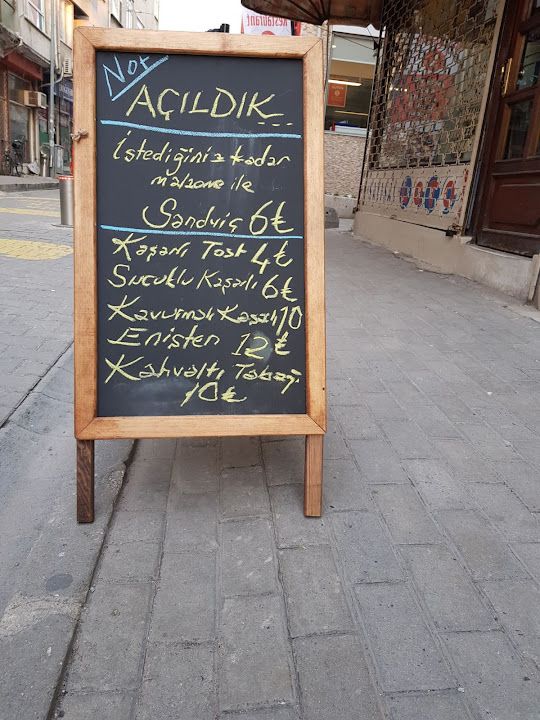 Not
AÇILDIK...
İstediğiniz kadar
malzeme ile
Sandviç 6₺
Kaşarlı Tost 4₺
Sucuklu Kaşarlı 6₺
Kavurmalı Kaşarlı 10
Enişten 12₺
Kahvaltı Tabağı
10₺
Restaurant